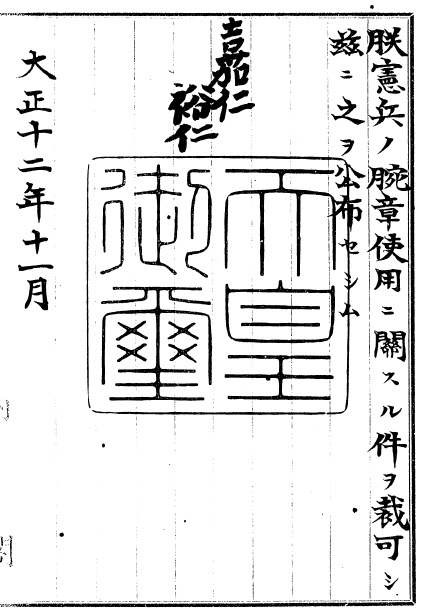 朕憲兵ノ腕章使用ニ關スル件ヲ裁可シ
茲ニ之ヲ公布セシム
嘉仁
裕仁
天皇
御璽
大正十二年十一月